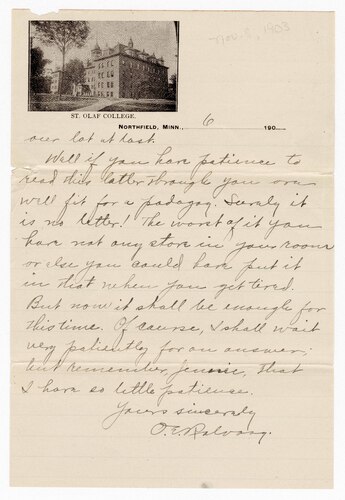 Nov. 9, 1903
ST. OLAF COLLEGE.
NORTHFIELD, MINN., 6 190
our lot at last.
Well if you have patience to
read this letter through you are
well fit for a padagog. Surely it
is no letter! The worst of it you
have not any stove in your room
or else you could have put it
in that when you get tired.
But now it shall be enough for
this time. Of course, I shall wait
very patiently for an answer;
but remember, Jennie, that
I have so little patience.
Yours sincerely
O. E. Rolvaag.